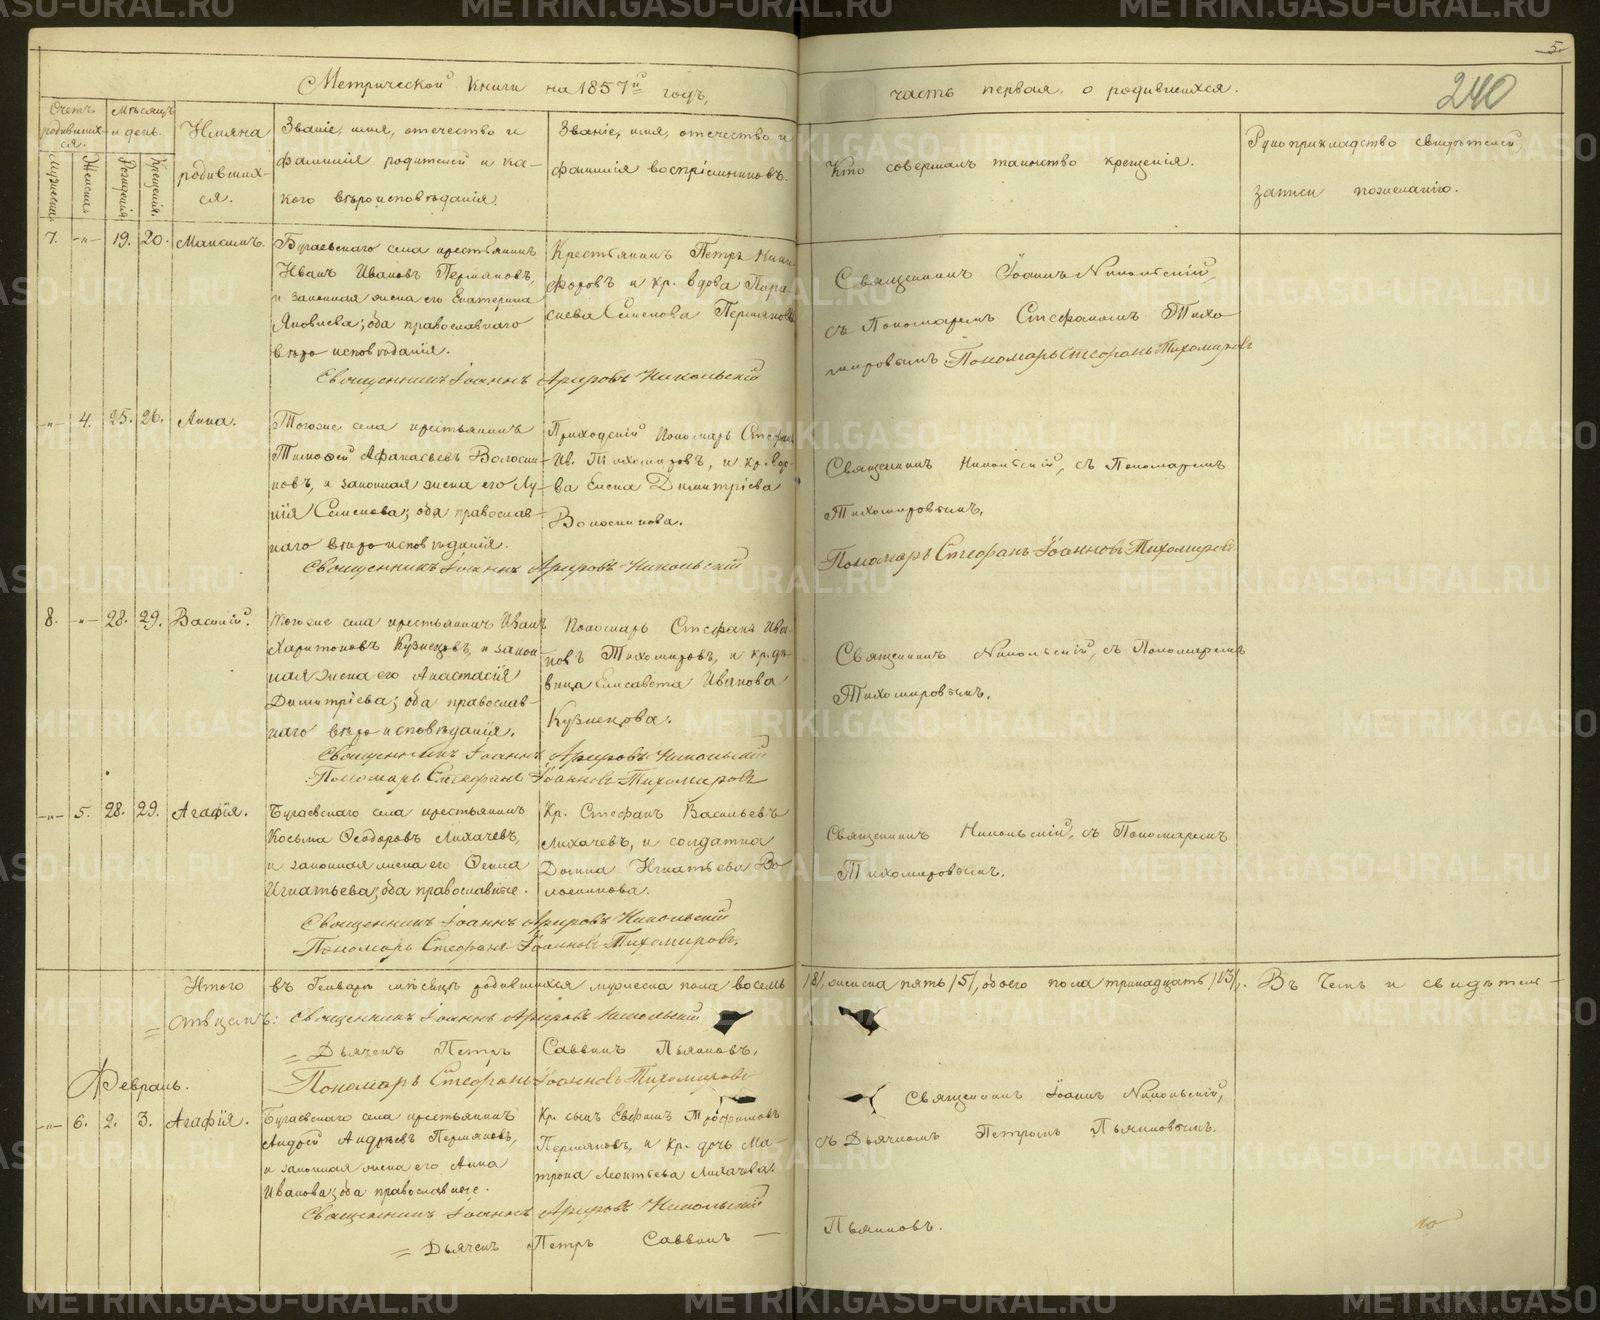 5.
240
Метрической книги на 1857й годъ,
часть первая, о родившихся.
Счетъ родившихся.
Мѣсяцъ и день.
Мужеска.
Женска.
Рожденія.
Крещенія.
Имяна родившихся.
Званіе, имя, отечество и фамилія родителей и какого вѣроисповѣданія.
Званіе, имя, отечество и фамилія воспріемниковъ.
Кто совершалъ таинство крещенія.
Рукоприкладство свидѣтелей записи пожеланію.
7. -"- 19. 20. Максимъ.
Бугаевскаго села крестьянинъ
Иванъ Ивановъ Пермяковъ,
и законная жена его Екатерина
Яковлева; оба православнаго
вѣроисповѣданія.
Крестьянинъ Петръ Ники-
форовъ и кр. вдова Пара-
скева Семенова Пермякова
Священникъ Іоаннъ Никольскій,
съ Пономаремъ Стефаномъ Тихо
мировымъ. Пономарь Стефанъ Тихомировъ
Священникъ Іоаннъ Никольскій
-"- 4. 25. 26. Анна.
Тогоже села крестьянинъ
Тимофей Афанасьевъ Волосни-
ковъ, и законная жена его Лу-
кія Семенова; оба православ-
наго вѣроисповѣданія.
Приходскій пономарь Стефанъ
Ив. Тихомировъ, и кр. вдо-
ва Елена Димитріева
Волосникова.
Священникъ Никольскій, съ Пономаремъ
Тихомировымъ.
Пономарь Стефанъ Іоанновъ Тихомировъ
Священникъ Іоаннъ Никольскій
8. -"- 28. 29. Василій.
Тогоже села крестьянинъ Иванъ
Харитоновъ Кузнецовъ, и закон-
ная жена его Анастасія
Димитріева; оба православ-
наго вѣроисповѣданія.
Пономарь Стефанъ Ива-
новъ Тихомировъ, и кр. дѣ-
вица Елисавета Иванова
Кузнецова.
Священникъ Никольскій, съ Пономаремъ
Тихомировымъ.
Священникъ Іоаннъ Никольскій
Пономарь Стефанъ Іоанновъ Тихомировъ
-"- 5. 28. 29. Агафія.
Бугаевскаго села крестьянинъ
Косьма Ѳеодоровъ Лихачевъ,
и законная жена его Ѳекла
Игнатьева; оба православные.
Кр. Стефанъ Васильевъ
Лихачевъ, и солдатка
Домна Игнатьева Во-
лосникова.
Священникъ Никольскій, съ Пономаремъ
Тихомировымъ.
Священникъ Іоаннъ Никольскій
Пономарь Стефанъ Іоанновъ Тихомировъ.
Итого въ Генварѣ мѣсяцѣ родившихся мужеска пола восемь /8/, женска пять /5/, обоего пола тринадцать /13/. Въ чемъ и свидѣтель-
ствуемъ: Священникъ Іоаннъ Никольскій
Дьячекъ Петръ Саввинъ Пьянковъ.
Пономарь Стефанъ Іоанновъ Тихомировъ
Февраль.
-"- 6. 2. 3. Агафія.
Бугаевскаго села крестьянинъ
Андрей Андреевъ Пермяковъ,
и законная жена его Анна
Иванова; оба православные.
Кр. сынъ Евфимъ Трофимовъ
Пермяковъ, и кр. дочь Ма-
трона Леонтьева Лихачева.
Священникъ Іоаннъ Никольскій,
съ Дьячкомъ Петромъ Пьянковымъ.
Священникъ Іоаннъ Никольскій
Дьячекъ Петръ Саввинъ — Пьянковъ.
METRIKI.GASO-URAL.RU